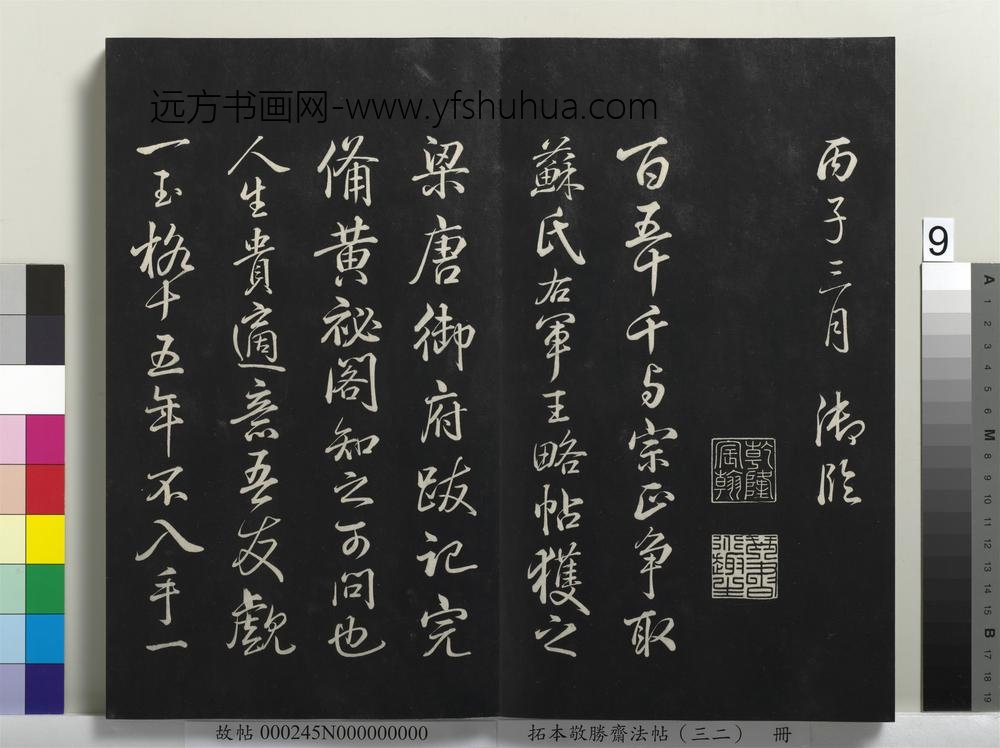 远方书画网-www.yfshuhua.com
丙子三月御臨
乾隆宸翰
百五十千与宗正争取
蘇氏右軍王略帖獲之
梁唐御府跋記完
備黄祕閣知之可問也
人生貴適意吾友覷
一玉格十五年不入手一
9
故帖 000245N000000000
拓本敬勝齋法帖（三二） 冊
A 1 2 3 4 5 6 M 8 9 10 11 12 13 14 15 B 17 18 19